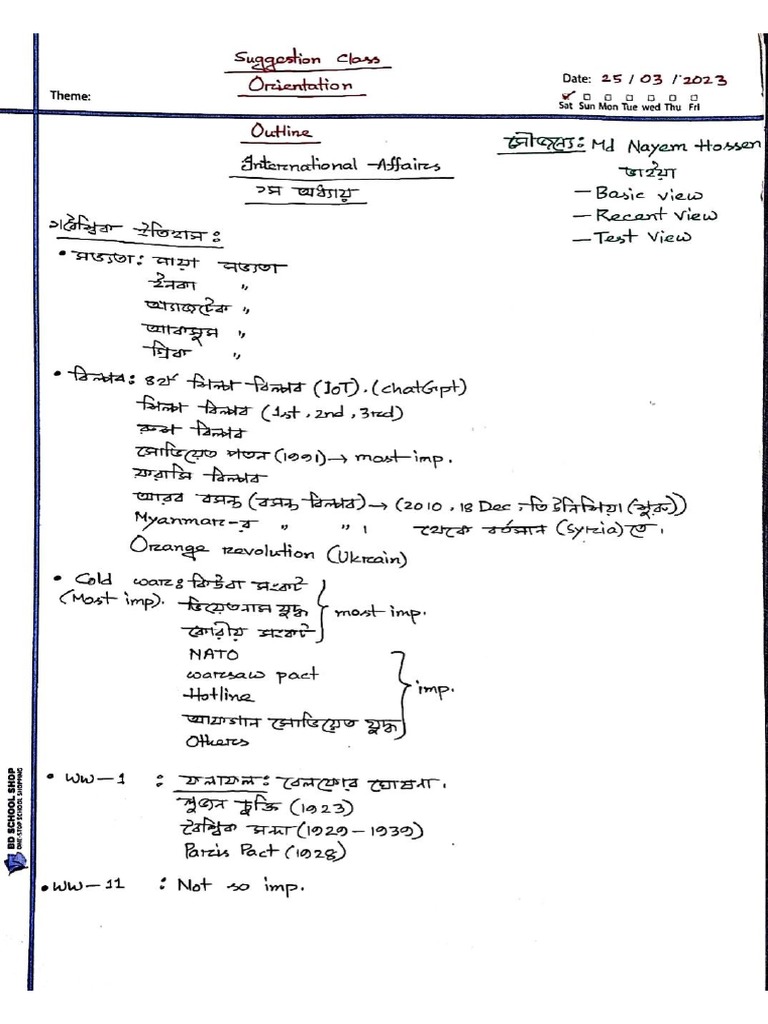 Suggestion Class
Orientation
Theme:
Date: 25/03/2023
Sat Sun Mon Tue wed Thu Fri
Outline
International Affairs
১ম অধ্যায়
সৌজন্যে: Md Nayem Hossen
ভাইয়া
— Basic view
— Recent view
— Test view
বৈশ্বিক ইতিহাস:
• সভ্যতা: মায়া সভ্যতা
ইনকা "
অ্যাজটেক "
"
গ্রিক "
• বিপ্লব: ৪র্থ শিল্প বিপ্লব (IoT). (chatGpt)
শিল্প বিপ্লব (1st, 2nd, 3rd)
রুশ বিপ্লব
সোভিয়েত পতন (1991) → most imp.
ফরাসি বিপ্লব
আরব বসন্ত (বসন্ত বিপ্লব) → (2010, 18 Dec, তিউনিশিয়া (শুরু))
Myanmar-র " " । থেকে বর্তমান (Syria) তে।
Orange revolution (Ukrain)
• Cold war: কিউবা সংকট
(Most imp). ভিয়েতনাম যুদ্ধ most imp.
কোরীয় সংকট
NATO
warsaw pact
Hotline imp.
আফগান সোভিয়েত যুদ্ধ
Others
• WW-1 : ফলাফল: বেলফোর ঘোষনা.
লুজান চুক্তি (1923)
বৈশ্বিক মন্দা (1929-1939)
Paris Pact (1928)
• WW-11 : Not so imp.
BD SCHOOL SHOP
ONE-STOP SCHOOL SHOPPING